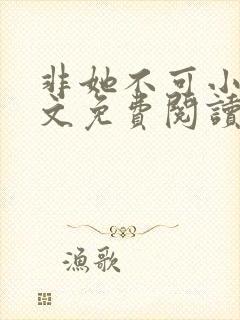 非她不可小
文免費閱讀
漁歌